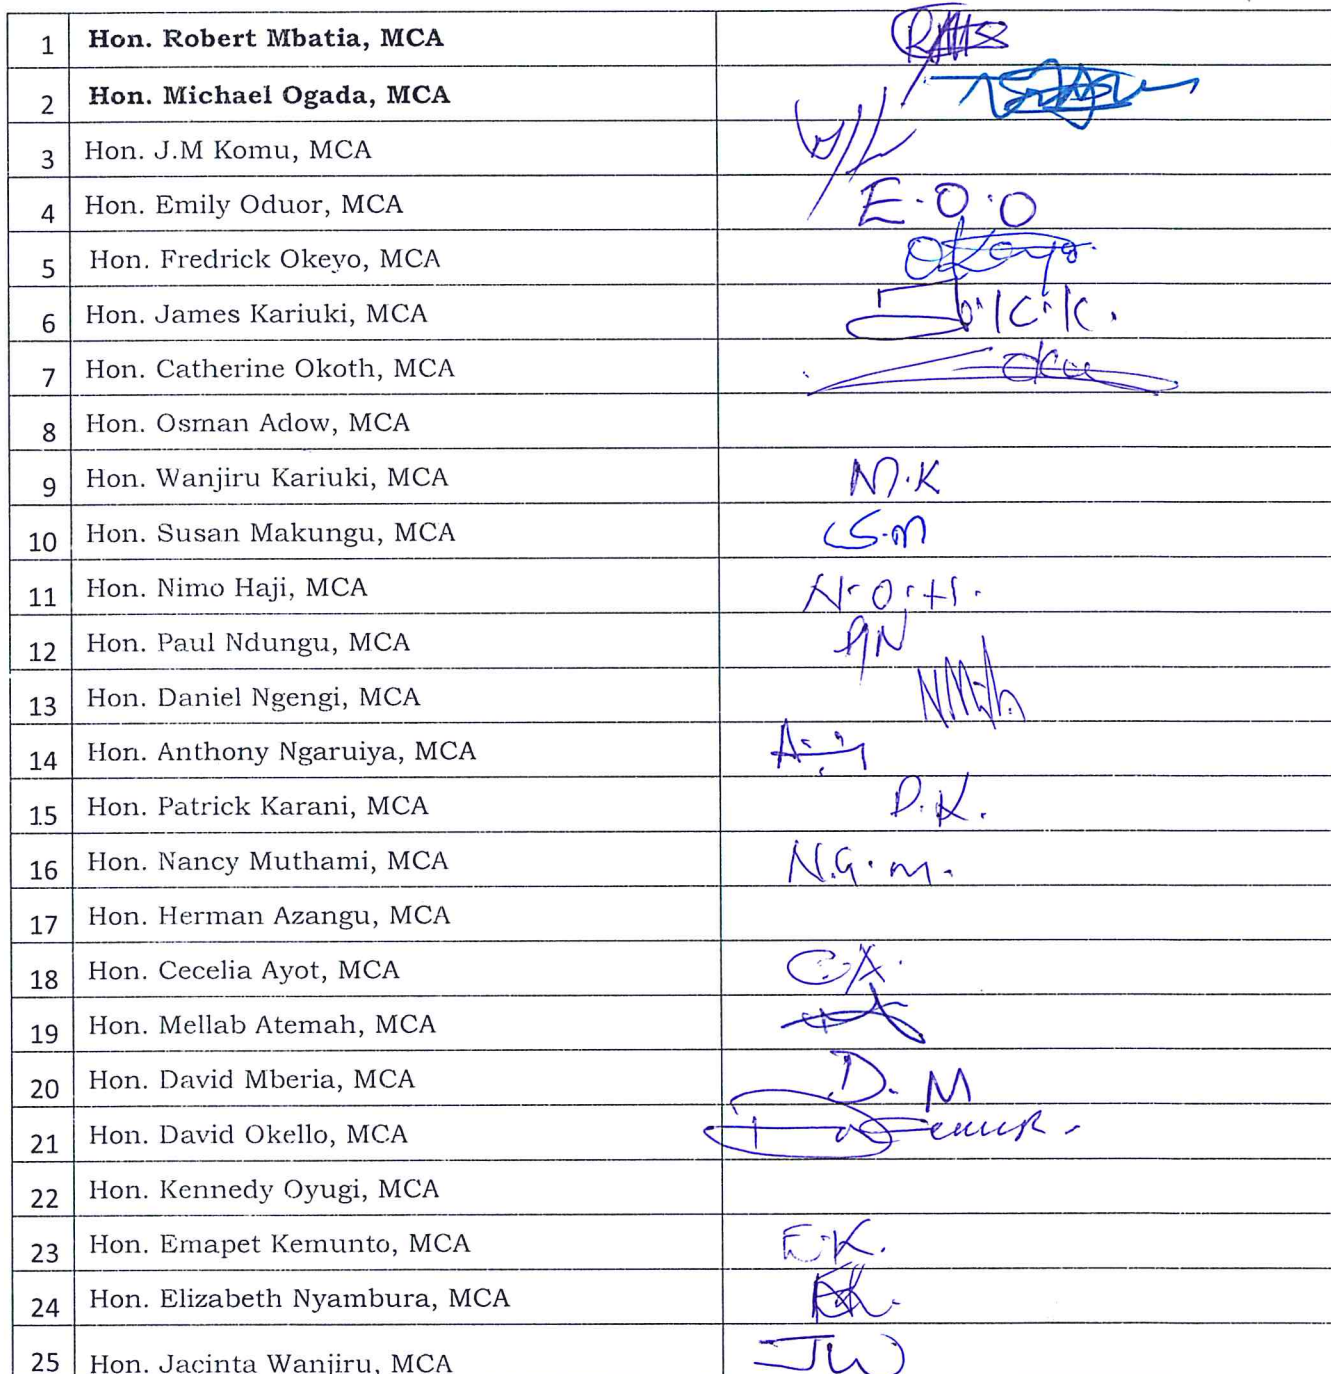 1 Hon. Robert Mbatia, MCA
2 Hon. Michael Ogada, MCA
3 Hon. J.M Komu, MCA
4 Hon. Emily Oduor, MCA E.O.O
5 Hon. Fredrick Okeyo, MCA Okeyo.
6 Hon. James Kariuki, MCA
7 Hon. Catherine Okoth, MCA
8 Hon. Osman Adow, MCA
9 Hon. Wanjiru Kariuki, MCA M.K
10 Hon. Susan Makungu, MCA S.M
11 Hon. Nimo Haji, MCA N.O.H.
12 Hon. Paul Ndungu, MCA PN
13 Hon. Daniel Ngengi, MCA
14 Hon. Anthony Ngaruiya, MCA
15 Hon. Patrick Karani, MCA P.K.
16 Hon. Nancy Muthami, MCA N.G.M.
17 Hon. Herman Azangu, MCA
18 Hon. Cecelia Ayot, MCA C.A.
19 Hon. Mellab Atemah, MCA
20 Hon. David Mberia, MCA D. M
21 Hon. David Okello, MCA
22 Hon. Kennedy Oyugi, MCA
23 Hon. Emapet Kemunto, MCA E.K.
24 Hon. Elizabeth Nyambura, MCA
25 Hon. Jacinta Wanjiru, MCA JW